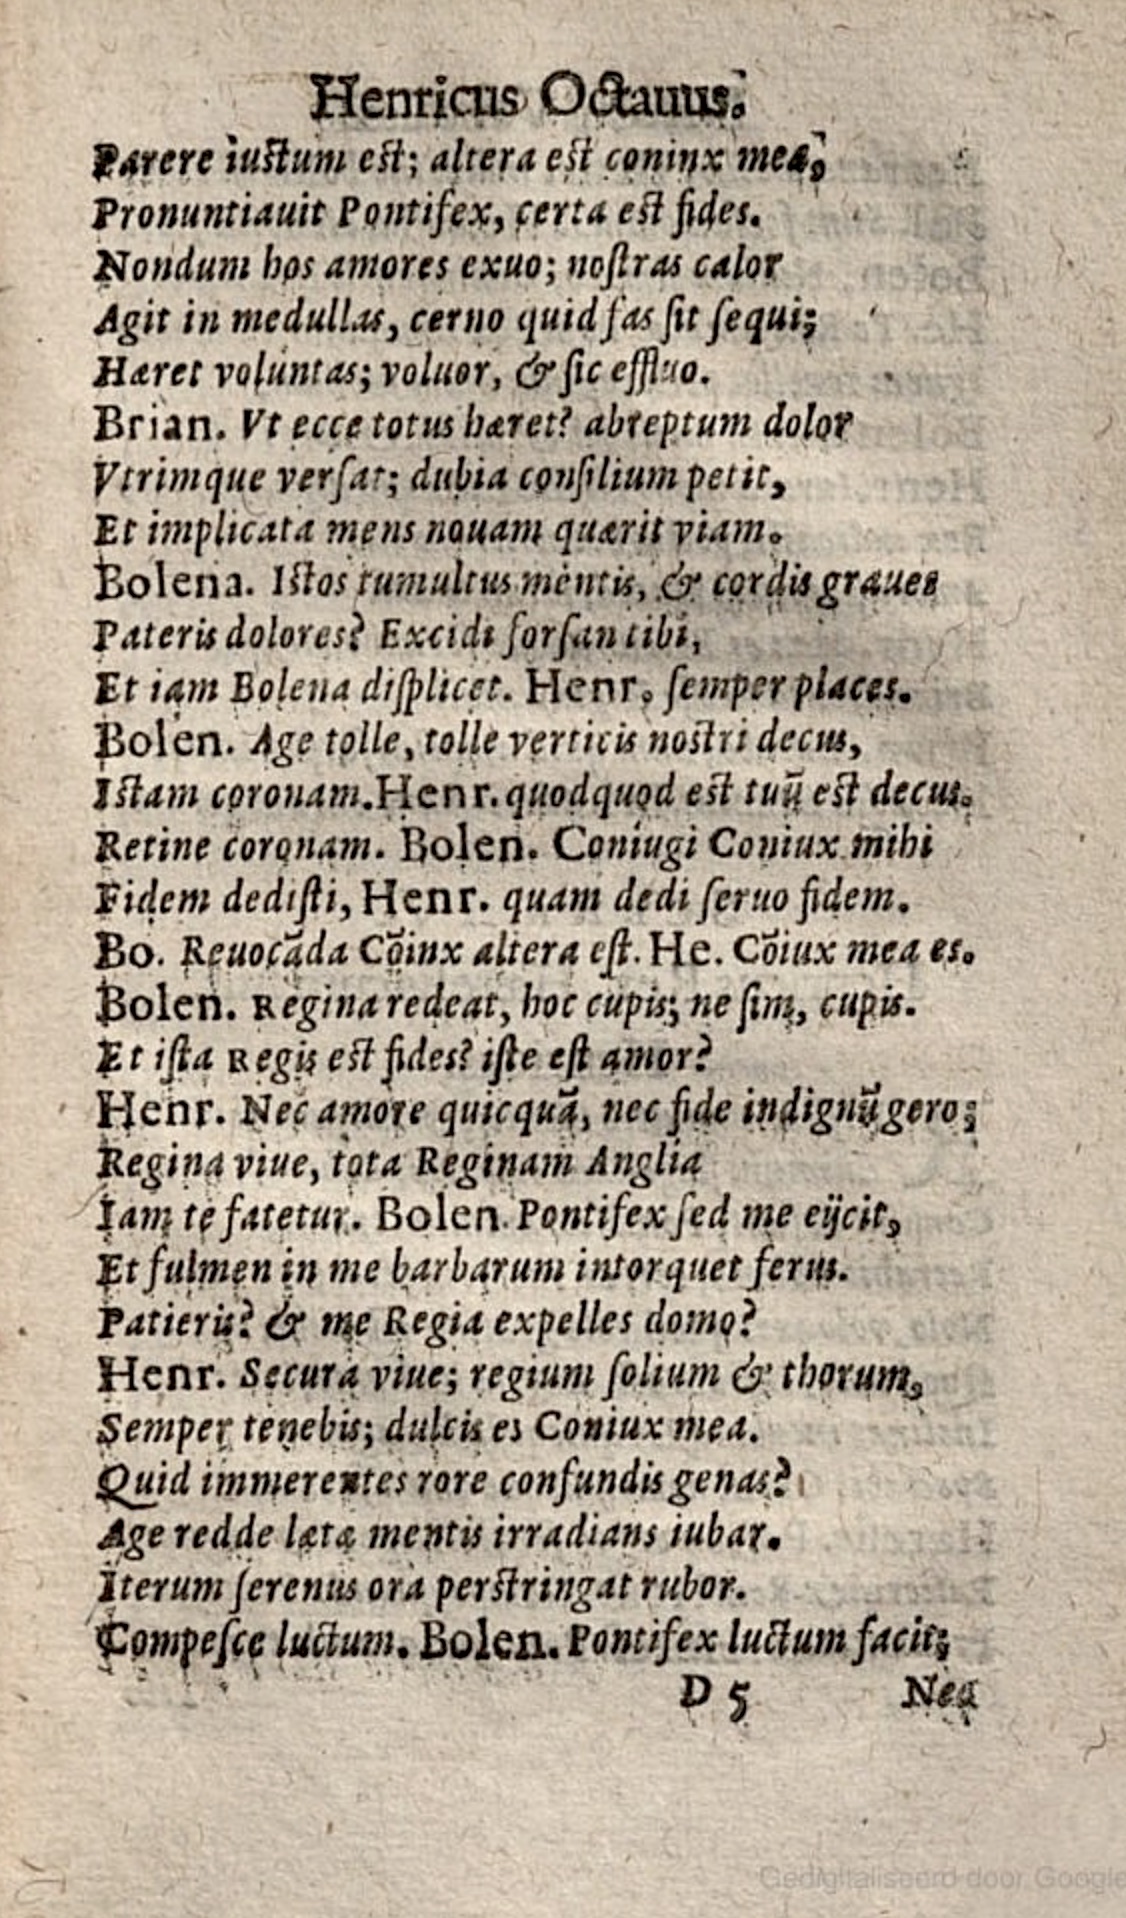 Henricus Octauus.
Parere iustum est; altera est coninx mea,
Pronuntiauit Pontifex, certa est fides.
Nondum hos amores exuo; nostras calor
Agit in medullas, cerno quid fas sit sequi;
Hæret voluntas; voluor, & sic effluo.
Brian. Vt ecce totus hæret? abreptum dolor
Vtrimque versat; dubia consilium petit,
Et implicata mens nouam quærit viam.
Bolena. Istos tumultus mentis, & cordis graues
Pateris dolores? Excidi forsan tibi,
Et iam Bolena displicet. Henr. semper places.
Bolen. Age tolle, tolle verticis nostri decus,
Istam coronam. Henr. quodquod est tuũ est decus.
Retine coronam. Bolen. Coniugi Coniux mihi
Fidem dedisti, Henr. quam dedi seruo fidem.
Bo. Reuocãda Cõinx altera est. He. Cõiux mea es.
Bolen. Regina redeat, hoc cupis; ne sim, cupis.
Et ista Regis est fides? iste est amor?
Henr. Nec amore quicquã, nec fide indignũ gero;
Regina viue, tota Reginam Anglia
Iam te fatetur. Bolen. Pontifex sed me eijcit,
Et fulmen in me barbarum intorquet ferus.
Patieris? & me Regia expelles domo?
Henr. Secura viue; regium solium & thorum,
Semper tenebis; dulcis es Coniux mea.
Quid immerentes rore confundis genas?
Age redde læta mentis irradians iubar.
Iterum serenus ora perstringat rubor.
Compesce luctum. Bolen. Pontifex luctum facit;
D 5 Nea
Gedigitaliseerd door Google